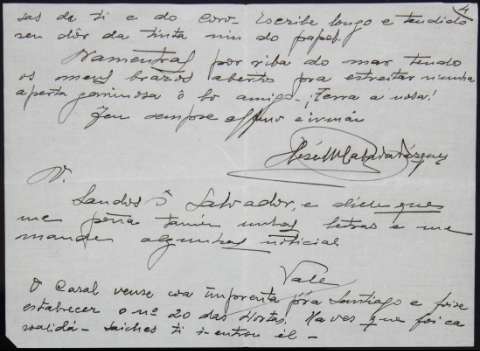 4
sas da ti e do coro. Escribe longo e tendido
sen dór da tinta nin do papel.
Namentras por riba do mar tendo
os meus brazos aberto pra estreitar nunha
aperta garimosa ô bo amigo. ¡Terra a nosa!
Teu sempre affmo e irmán
V.
Saudos ô Salvador, e dicle que
me poña tamén unhas letras e me
mande algunhas noticias
Vale
O Casal vense coa imprenta pra Santiago e foise
estabrecer o nº 20 das Hortas. Haves que foi ca
validá